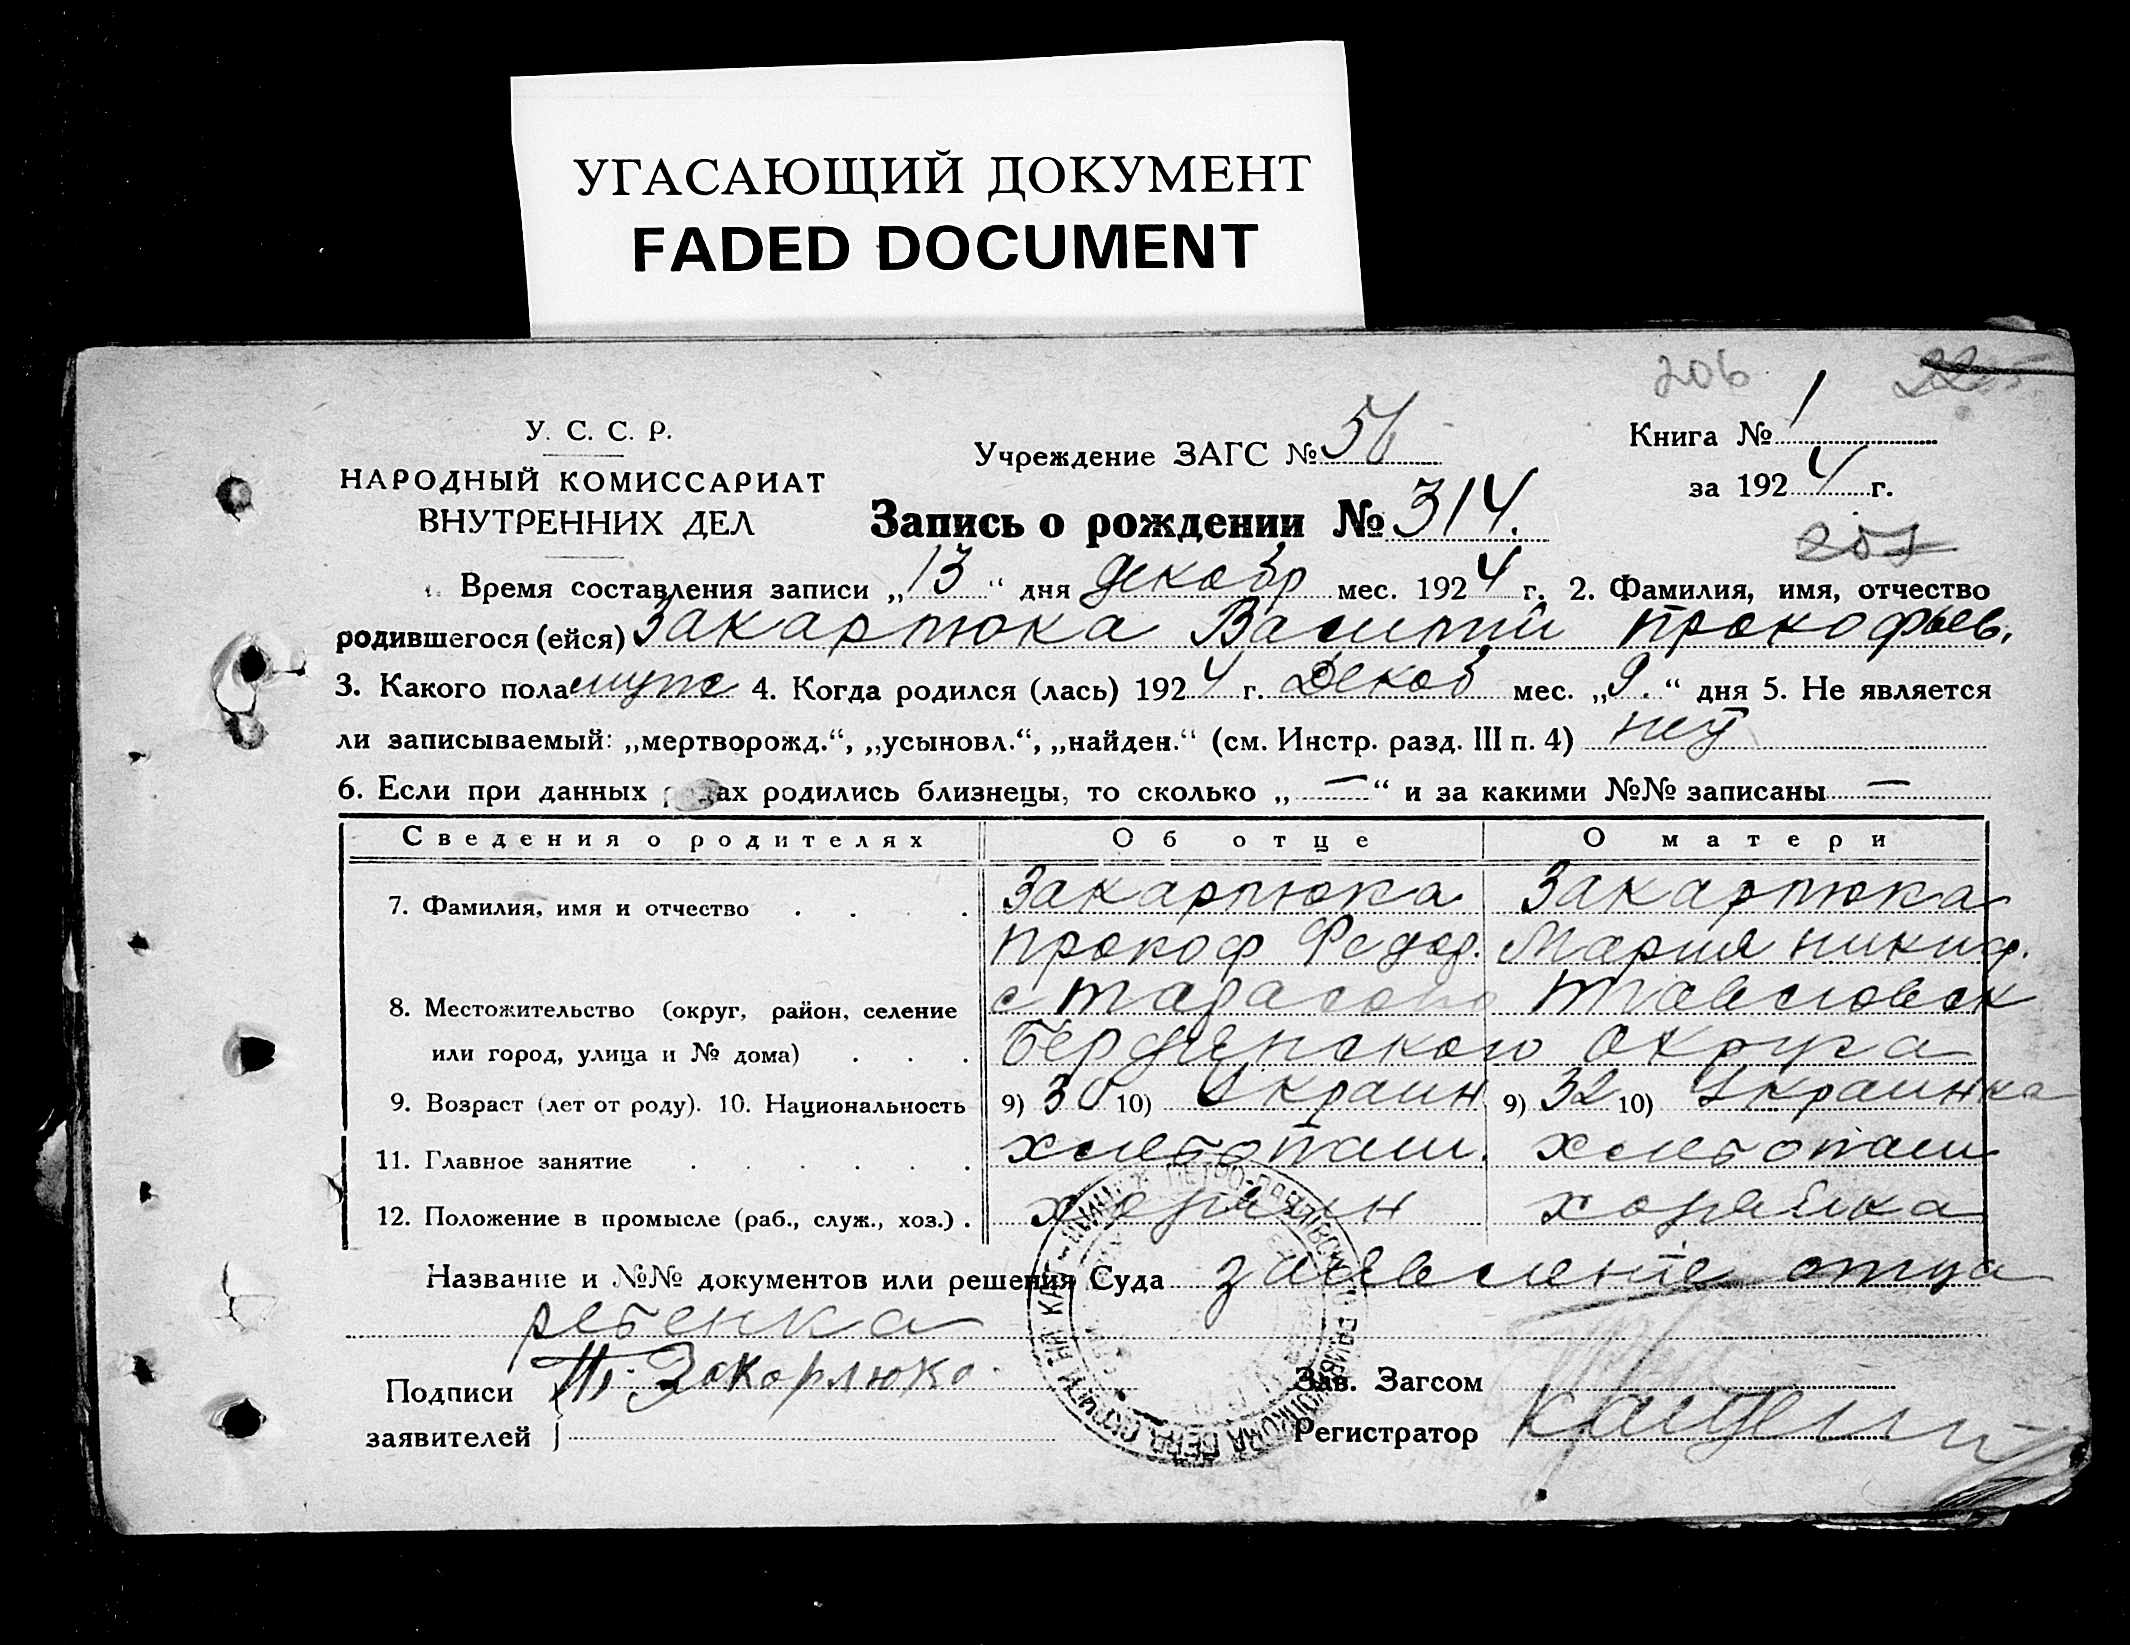 УГАСАЮЩИЙ ДОКУМЕНТ
FADED DOCUMENT
206
У. С. С. Р.
НАРОДНЫЙ КОМИССАРИАТ
ВНУТРЕННИХ ДЕЛ
Учреждение ЗАГС № 56
Книга № 1
за 1924 г.
Запись о рождении № 314.
Время составления записи „13“ дня декабр мес. 1924 г. 2. Фамилия, имя, отчество
родившегося (ейся) Закарлюка Василий Прокофьев.
3. Какого пола муж 4. Когда родился (лась) 1924 г. Декаб мес. „9.“ дня 5. Не является
ли записываемый: „мертворожд.“, „усыновл.“, „найден.“ (см. Инстр. разд. III п. 4) нет
6. Если при данных родах родились близнецы, то сколько „—“ и за какими №№ записаны —
Сведения о родителях Об отце О матери
7. Фамилия, имя и отчество . . . . Закарлюка Закарлюка
Прокоф Федор. Мария Никиф.
8. Местожительство (округ, район, селение с
или город, улица и № дома) . . . округа
9. Возраст (лет от роду). 10. Национальность 9) 30 10) Украин 9) 32 10) Украинка
11. Главное занятие . . . . . . хлебопаш. хлебопаш
12. Положение в промысле (раб., служ., хоз.) .
Название и №№ документов или решения Суда заявление отца
ребенка
Подписи П. Закорлюко Зав. Загсом
заявителей Регистратор